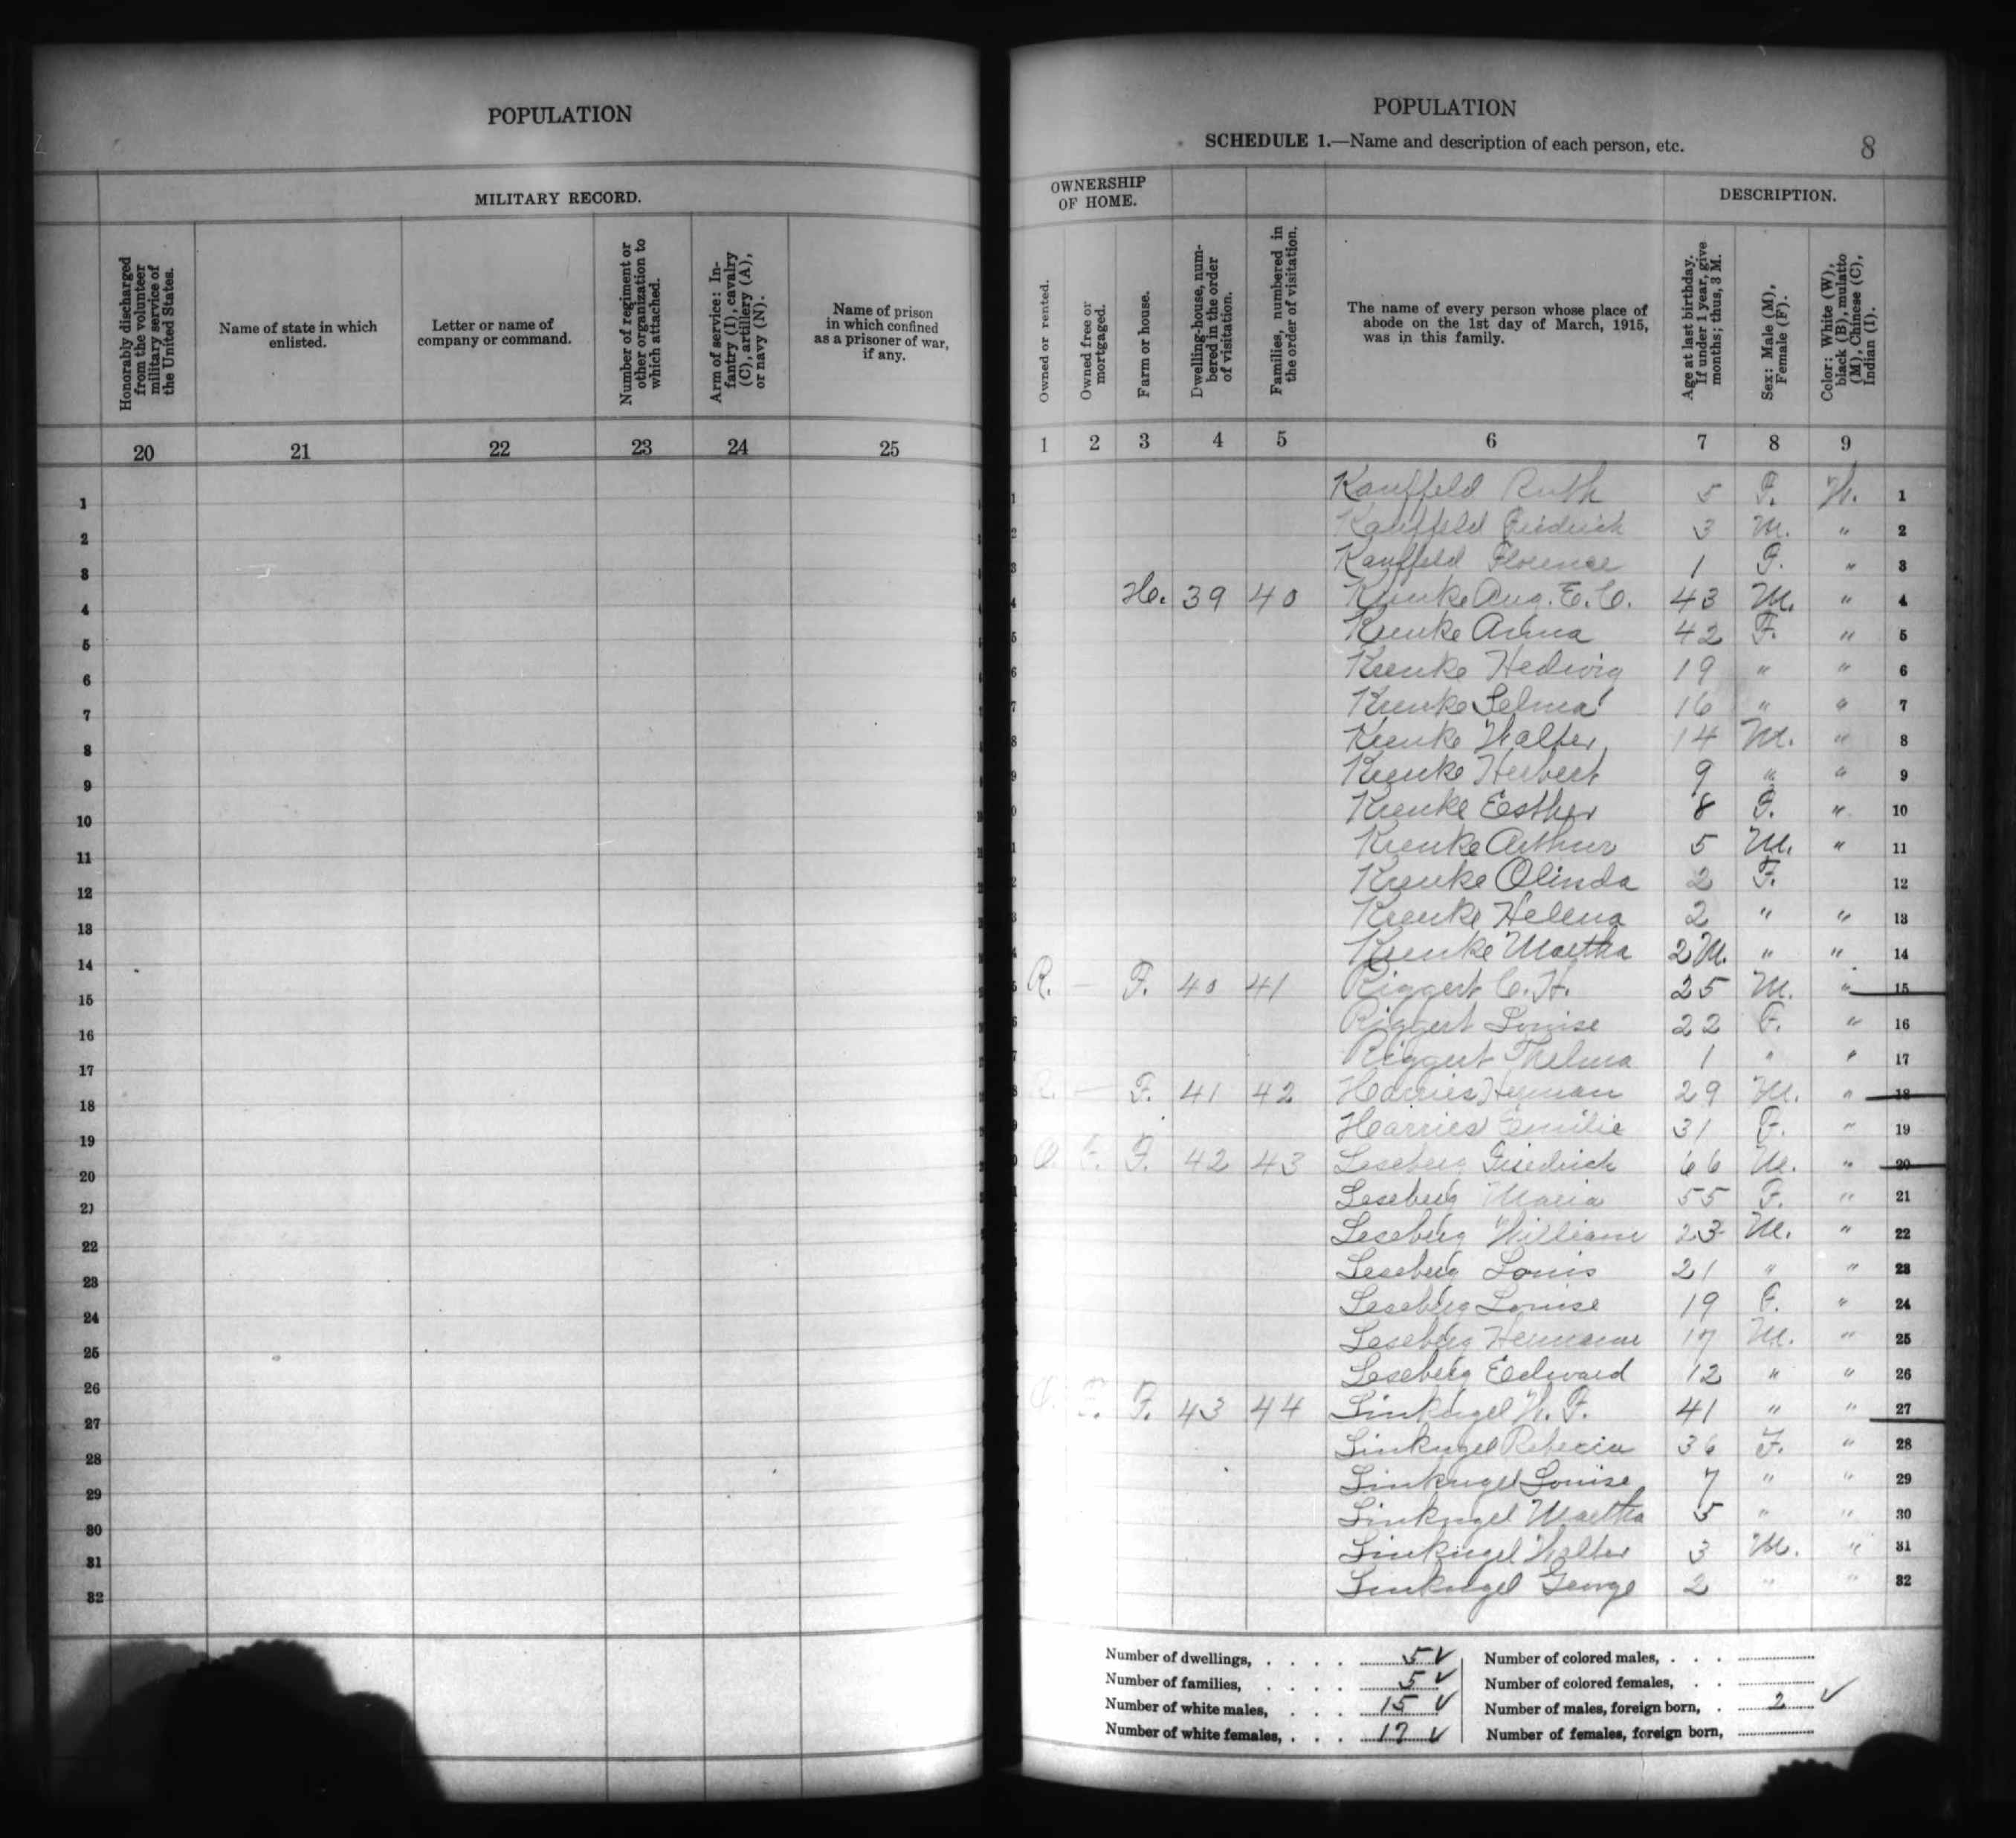 POPULATION
MILITARY RECORD.
Honorably discharged from the volunteer military service of the United States.
Name of state in which enlisted.
Letter or name of company or command.
Number of regiment or other organization to which attached.
Arm of service: Infantry (I), cavalry (C), artillery (A), or navy (N).
Name of prison in which confined as a prisoner of war, if any.
20 21 22 23 24 25
1
2
3
4
5
6
7
8
9
10
11
12
13
14
15
16
17
18
19
20
21
22
23
24
25
26
27
28
29
30
31
32
POPULATION
SCHEDULE 1.—Name and description of each person, etc. 8
OWNERSHIP OF HOME.
DESCRIPTION.
Owned or rented.
Owned free or mortgaged.
Farm or house.
Dwelling-house, numbered in the order of visitation.
Families, numbered in the order of visitation.
The name of every person whose place of abode on the 1st day of March, 1915, was in this family.
Age at last birthday. If under 1 year, give months; thus, 3 M.
Sex: Male (M), Female (F).
Color: White (W), black (B), mulatto (M), Chinese (C), Indian (I).
1 2 3 4 5 6 7 8 9
Kauffeld Ruth 5 F. W. 1
Kauffeld Friedrich 3 M. " 2
Kauffeld Florence 1 F. " 3
Ho. 39 40 Krenke Aug. E. C. 43 M. " 4
Krenke Anna 42 F. " 5
Krenke Hedwig 19 " " 6
Krenke Selma 16 " " 7
Krenke Walter 14 M. " 8
Krenke Herbert 9 " " 9
Krenke Esther 8 F. " 10
Krenke Arthur 5 M. " 11
Krenke Olinda 2 F. 12
Krenke Helena 2 " " 13
Krenke Martha 2 M. " " 14
R. — F. 40 41 Riggert C. H. 25 M. " 15
Riggert Louise 22 F. " 16
Riggert Thelma 1 " " 17
R. — F. 41 42 Harries Herman 29 M. " 18
Harries Emilie 31 F. " 19
O. F. F. 42 43 Leseberg Friedrich 66 M. " 20
Leseberg Maria 55 F. " 21
Leseberg William 23 M. " 22
Leseberg Louis 21 " " 23
Leseberg Louise 19 F. " 24
Leseberg Hermann 17 M. " 25
Leseberg Edward 12 " " 26
O. F. F. 43 44 Linkugel W. F. 41 " " 27
Linkugel Rebecca 36 F. " 28
Linkugel Louise 7 " " 29
Linkugel Martha 5 " " 30
Linkugel Walter 3 M. " 31
Linkugel George 2 " " 32
Number of dwellings, . . . . 5 ✓ Number of colored males, . . .
Number of families, . . . . 5 ✓ Number of colored females, . .
Number of white males, . . . 15 ✓ Number of males, foreign born, . 2 ✓
Number of white females, . . . 17 ✓ Number of females, foreign born,